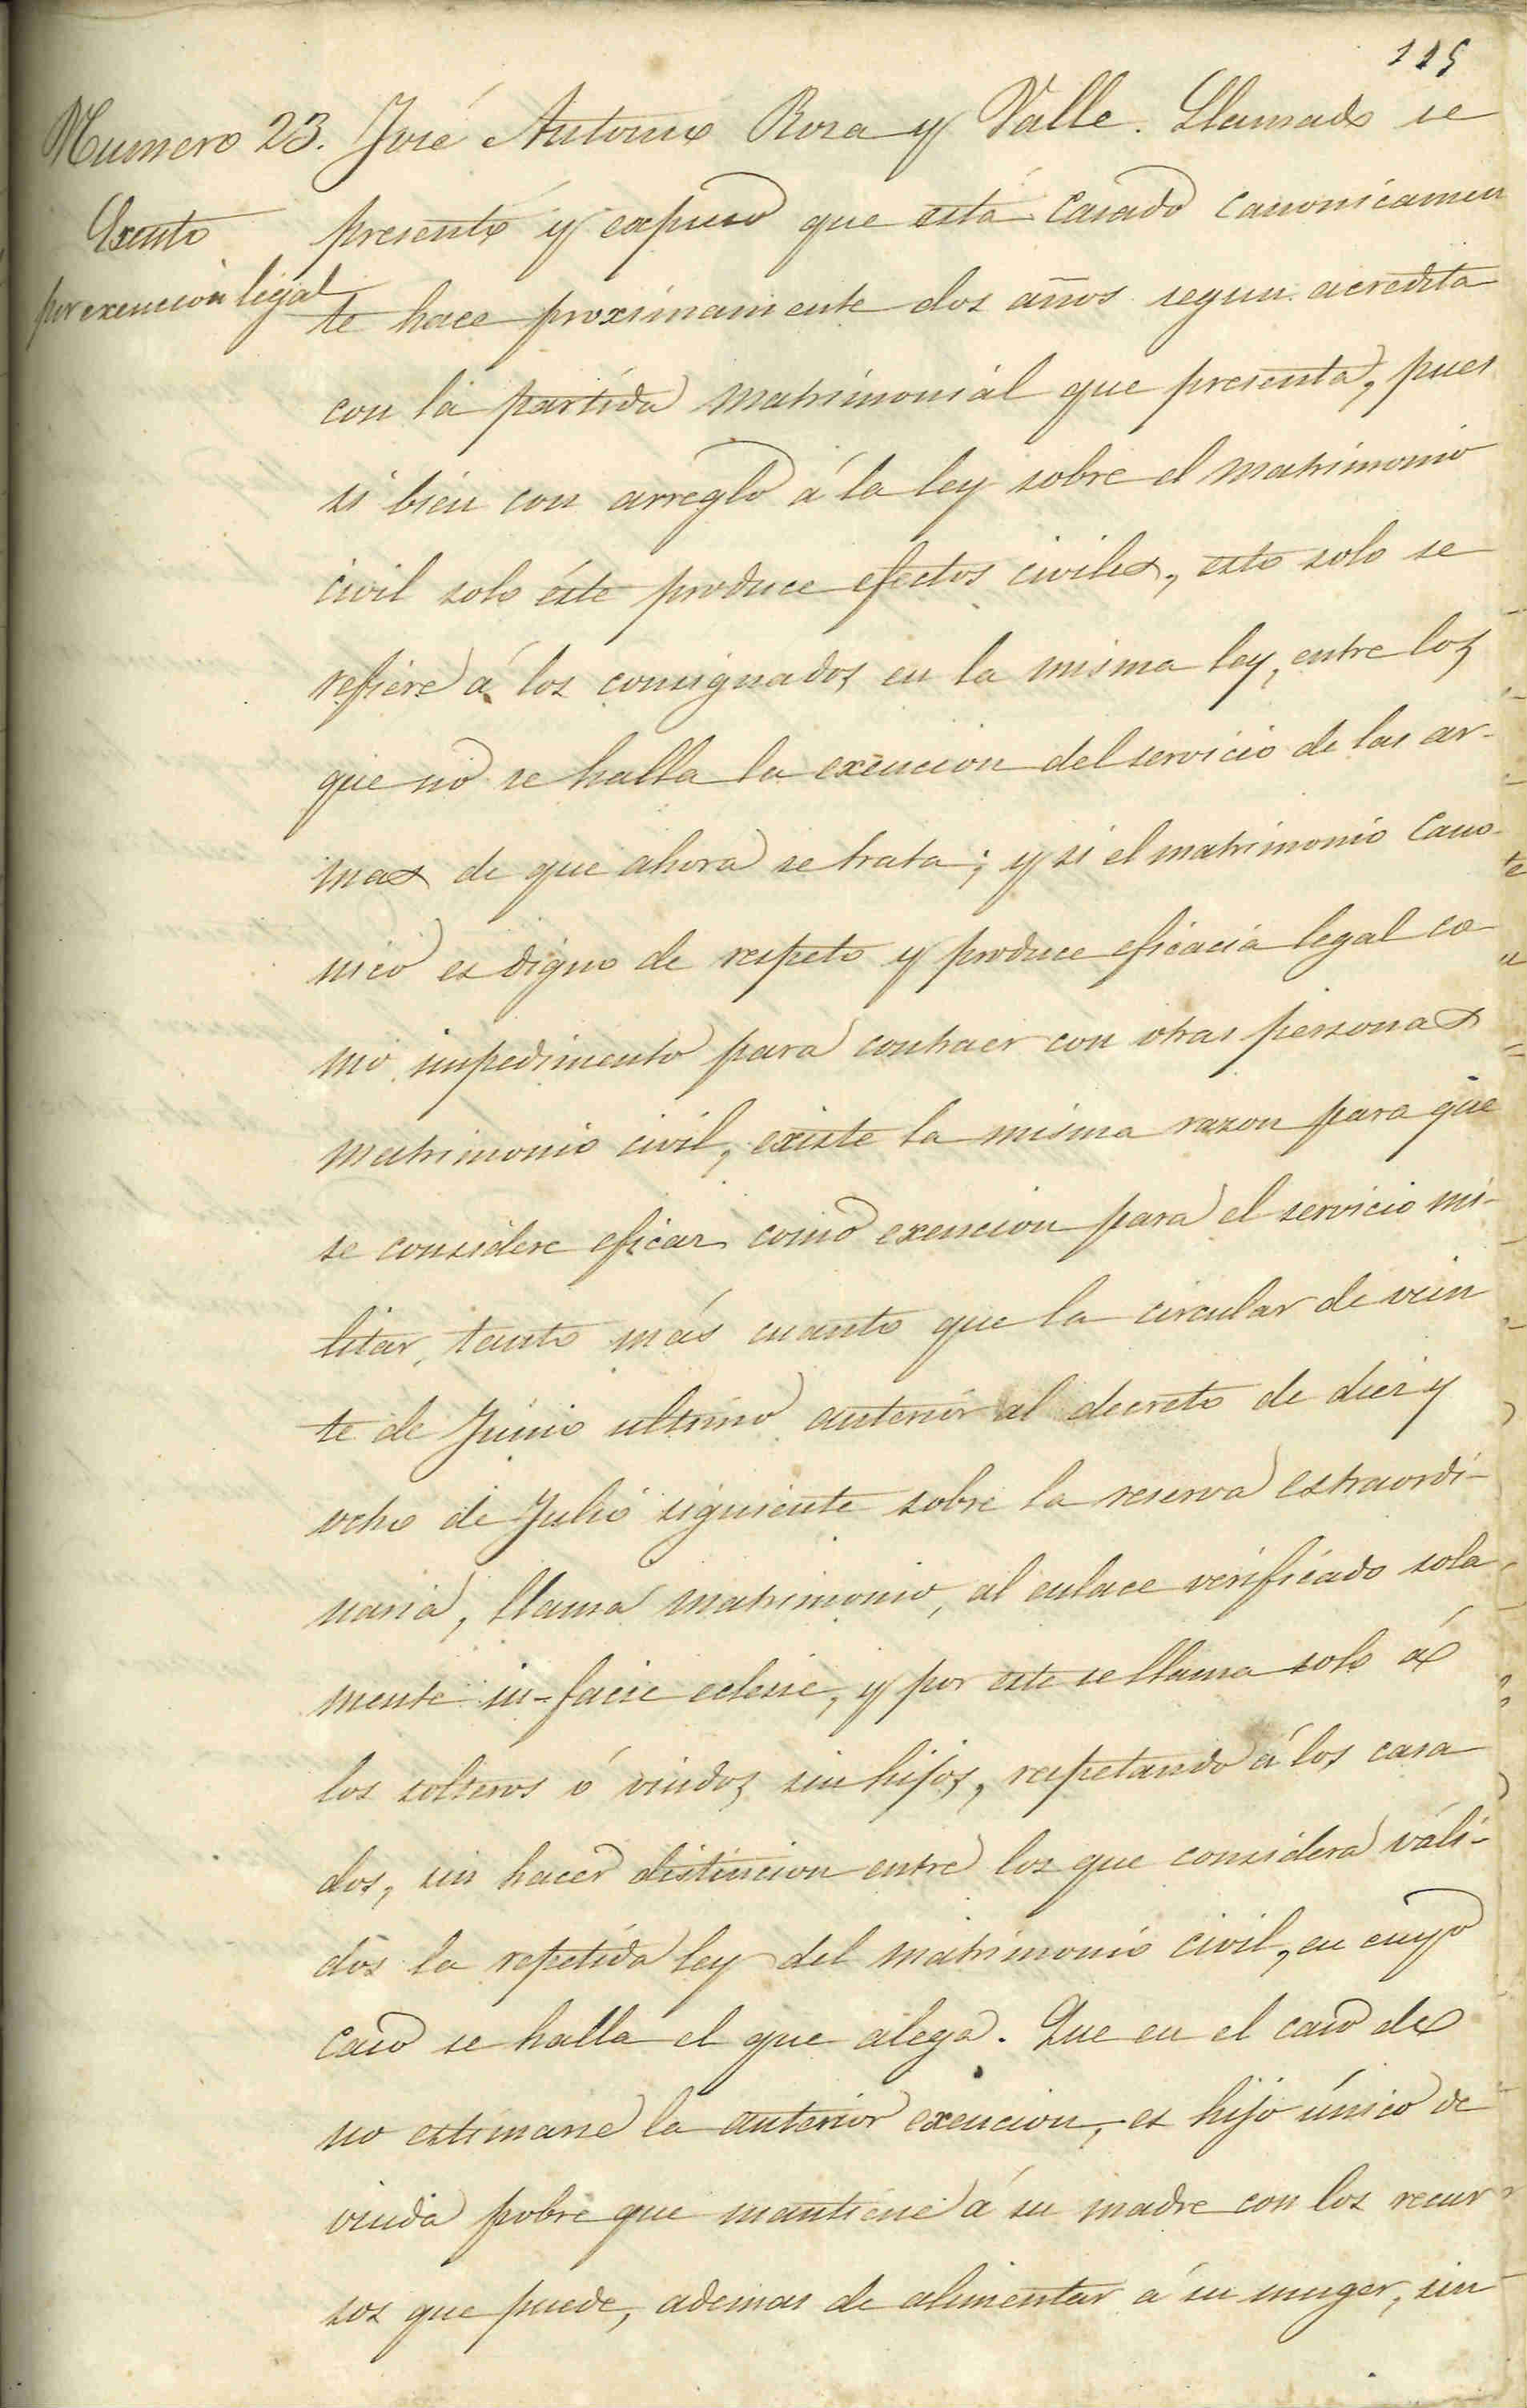 115
Numero 23. José Antonio Rosa y Valle. Llamado se
Exento
por exencion legal
presentó y expuso que está casado canonicamen
te hace proximamente dos años segun acredita
con la partida matrimonial que presenta, pues
si bien con arreglo á la ley sobre el matrimonio
civil solo éste produce efectos civiles, esto solo se
refiere á los consignados en la misma ley, entre los
que no se halla la exencion del servicio de las ar-
mas de que ahora se trata; y si el matrimonio cano-
nico es digno de respeto y produce eficacia legal co-
mo impedimento para contraer con otras personas
matrimonio civil, existe la misma razon para que
se considere eficaz como exencion para el servicio mi-
litar, tanto más cuanto que la circular de vein
te de Junio ultimo anterior al decreto de diez y
ocho de Julio siguiente sobre la reserva estraordi-
naria, llama matrimonio, al enlace verificado sola
mente in-facie eclesie, y por este se llama solo á
los solteros ó viudos sin hijos, respetando á los casa
dos, sin hacer distincion entre los que considera váli-
dos la repetida ley del matrimonio civil, en cuyo
caso se halla el que alega. Que en el caso de
no estimarse la anterior exencion, es hijo único de
viuda pobre que mantiene á su madre con los recur
sos que puede, ademas de alimentar á su muger, sin